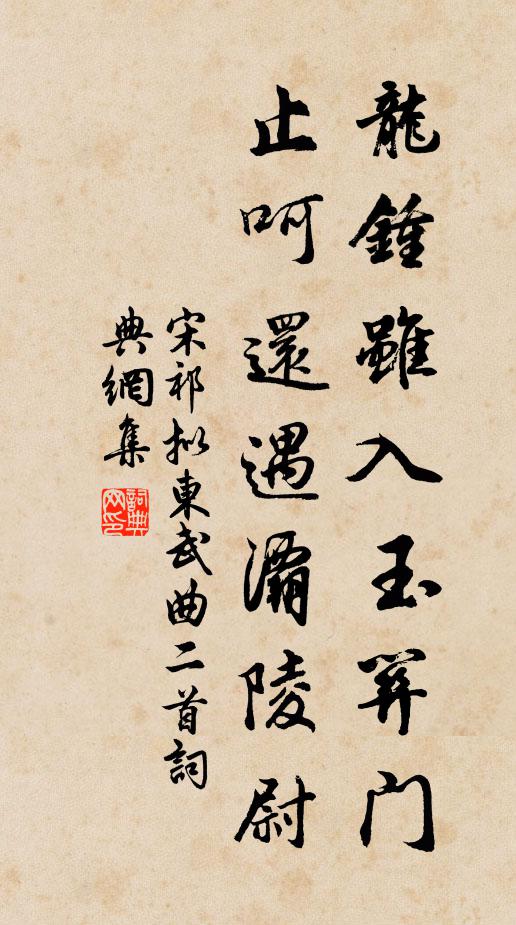 龍鍾雖入玉關門
止呵還遇灞陵尉
宋祁拟東武曲二首詞
典網集
詞典網印